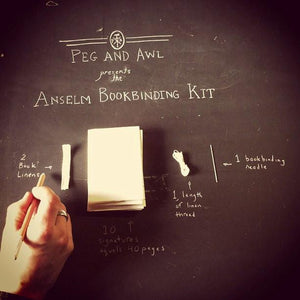 PEG AND AWL
presents
the
ANSELM BOOKBINDING KIT
2
Book
Linens
1 bookbinding
needle
1
length
of linen
thread
10
signatures
equals 40 pages